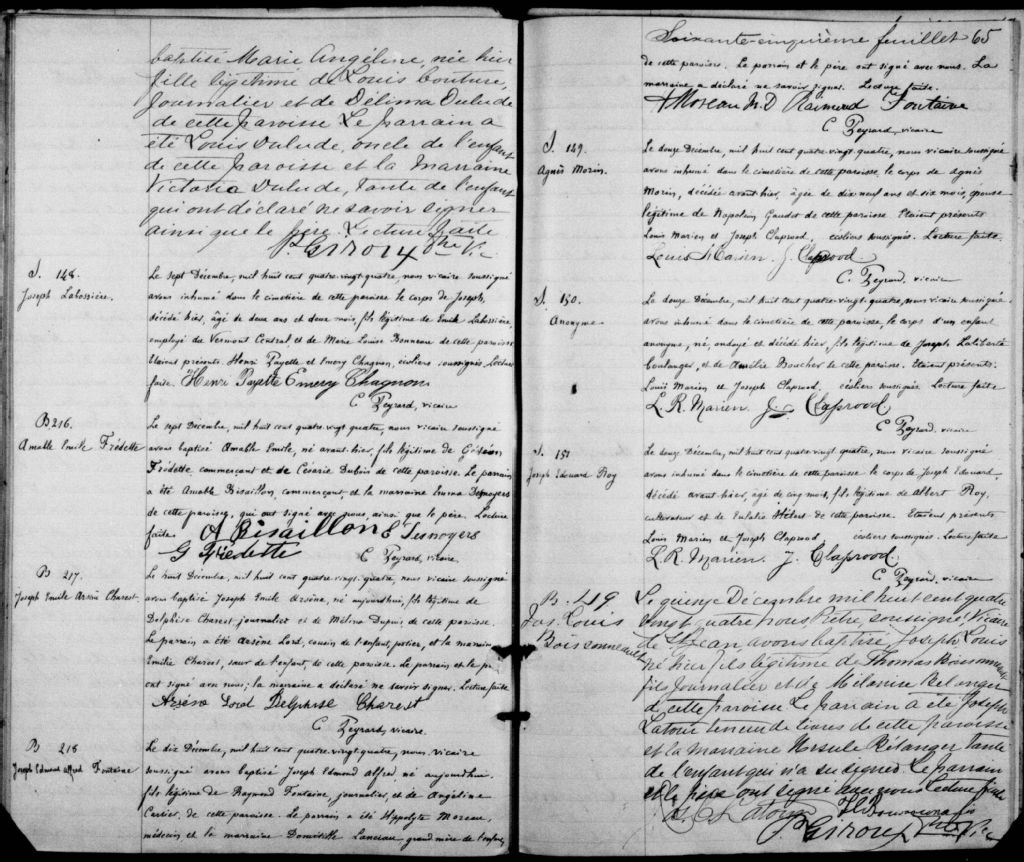 baptisé Marie Angéline, née hier
fille légitime de Louis Couture,
Journalier et de Délima Dulude
de cette paroisse Le parrain a
été Louis Dulude, oncle de l'enfant
de cette paroisse et la Marraine
Victoria Dulude, tante de l'enfant
qui ont déclaré ne savoir signer
ainsi que le père. Lecture faite
P. Giroux Ptre Vic
S. 148.
Joseph Labossière.
Le sept Décembre, mil huit cent quatre vingt quatre, nous vicaire soussigné
avons inhumé dans le cimetière de cette paroisse le corps de Joseph,
décédé hier, âgé de deux ans et deux mois, fils légitime de Emile Labossière,
employé de Vermont Central et de Marie Louise Bonneau de cette paroisse
Etaient présents Henri Payette et Emery Chagnon, écoliers soussignés Lecture
faite. Henri Payette Emery Chagnon
C Peyrard, vicaire
B 216.
Amable Emile Frédette
Le sept Décembre, mil huit cent quatre vingt quatre, nous vicaire soussigné
avons baptisé Amable Emile, né avant-hier, fils légitime de Gédéon
Frédette commerçant et de Césarie Dubois de cette paroisse. Le parrain
a été Amable Bisaillon, commerçant, et la marraine Emma Desnoyers
de cette paroisse, qui ont signé avec nous, ainsi que le père. Lecture
faite. A Bisaillon E Desnoyers
G Frédette
C Peyrard, vicaire.
B 217.
Joseph Emile Arsène Charest.
Le huit Décembre, mil huit cent quatre vingt-quatre, nous vicaire soussigné
avons baptisé Joseph Emile Arsène, né aujourd'hui, fils légitime de
Delphise Charest, journalier et de Mélina Dupuis de cette paroisse.
Le parrain a été Arsène Lord, cousin de l'enfant, potier, et la marraine
Emilie Charest, sœur de l'enfant, de cette paroisse. Le parrain et le pè
ont signé avec nous; la marraine a déclaré ne savoir signer. Lecture faite
Arsène Lord Delphise Charest
C Peyrard, vicaire.
B 218
Joseph Edmond alfred Fontaine
Le dix Décembre, mil huit cent quatre vingt quatre, nous, vicaire
soussigné avons baptisé Joseph Edmond alfred né aujourd'hui.
fils légitime de Raymond Fontaine, journalier, et de Angéline
Cartier, de cette paroisse. Le parrain a été Hippolyte Moreau,
médecin et la marraine Domitille Lanciau, grand mère de l'enfant
Soixante-cinquième feuillet 65
de cette paroisse. Le parrain et le père ont signé avec nous. La
marraine a déclaré ne savoir signer. Lecture faite.
H Moreau M.D Raimond Fontaine
C Peyrard, vicaire
S. 149.
Agnès Morin.
Le douze Décembre, mil huit cent quatre-vingt quatre, nous vicaire soussigné
avons inhumé dans le cimetière de cette paroisse, le corps de agnès
Morin, décédée avant hier, âgée de dix neuf ans et six mois, épouse
légitime de Napoléon Gaudet de cette paroisse. Etaient présents
Louis Marien et Joseph Claprood, écoliers soussignés. Lecture faite
Louis Marien. J. Claprood
C. Peyrard. vicaire
S. 150.
Anonyme.
Le douze Décembre, mil huit cent quatre-vingt-quatre, nous vicaire soussigné
avons inhumé dans le cimetière de cette paroisse, le corps d'un enfant
anonyme, né, ondoyé et décédé hier, fils légitime de Joseph Laliberté
boulanger, et de Amélie Boucher de cette paroisse. Etaient présents.
Louis Marien et Joseph Claprood, écoliers soussignés Lecture faite
L. R. Marien. J. Claprood.
C Peyrard. vicaire
S. 151
Joseph Edouard Roy
Le douze Décembre, mil huit cent quatre vingt quatre, nous vicaire soussigné
avons inhumé dans le cimetière de cette paroisse le corps de Joseph Edouard
décédé avant hier, âgé de cinq mois, fils légitime de Albert Roy,
cultivateur et de Eulalie Hébert de cette paroisse. Etaient présents
Louis Marien et Joseph Claprood, écoliers soussignés. Lecture faite
L. R. Marien. J. Claprood.
C Peyrard, vicaire
B. 219
Jos. Louis
Boissonneault
Le quinze Décembre mil huit cent quatre
vingt quatre nous Prêtre, soussigné, Vicaire
de St Jean avons baptisé Joseph Louis
né hier, fils légitime de Thomas Boissonneault
fils Journalier et de Mélanise Bélanger
de cette paroisse Le parrain a été Joseph
Latour teneur de livres de cette paroisse
et la Marraine Ursule Bélanger Tante
de l'enfant qui n'a su signer. Le parrain
et le père ont signé avec nous Lecture faite
Latour
P. Giroux Ptre Vic